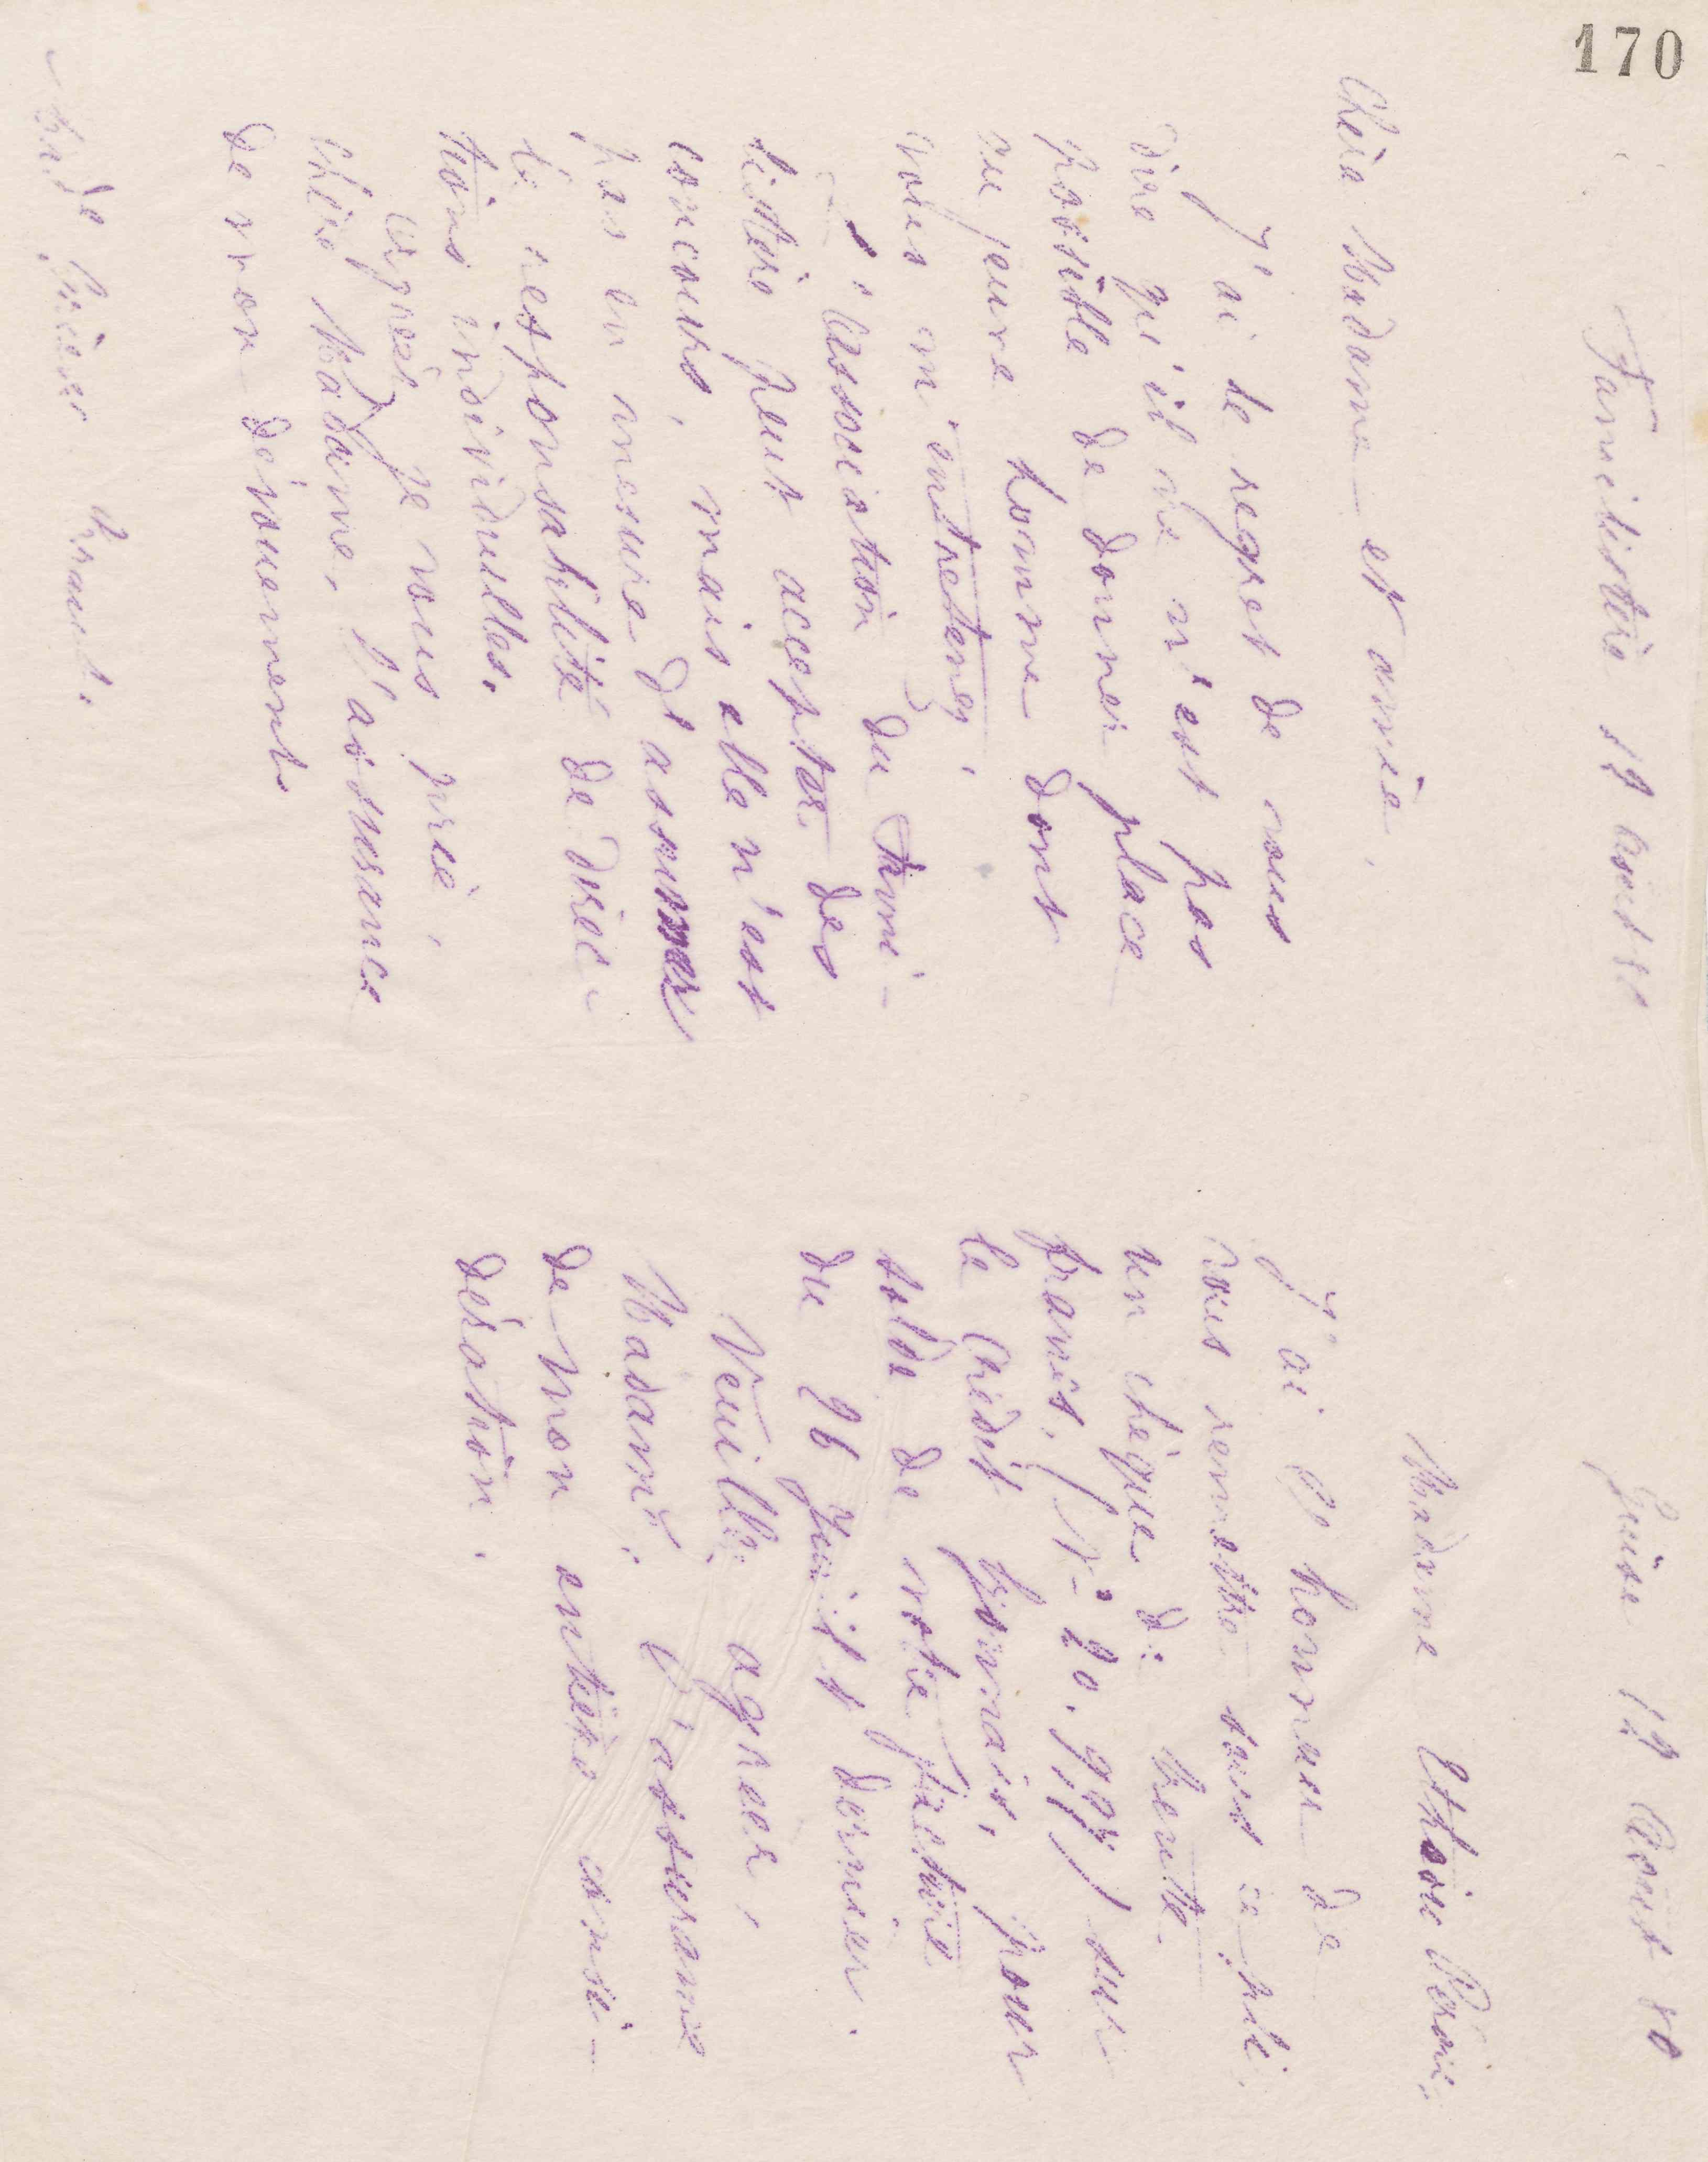 170
Familistère 12 Août 80
Chère Madame et amie,
J'ai le regret de vous
dire qu'il ne m'est pas
possible de donner place
au jeune homme dont
vous m'entretenez.
L'Association du Fami-
listère peut accepter des
concours, mais elle n'est
pas en mesure d'assumer
la responsabilité de direc-
tions individuelles.
Agréez, je vous prie,
chère Madame, l'assurance
de mon dévouement
Guise 12 Août 80
Madame
J'ai l'honneur de
vous remettre sous ce pli,
un chèque de trente
francs, (N° 20.997) sur
le Crédit lyonnais, pour
solde de votre facture
du 26 Juillet dernier.
Veuillez agréer,
Madame, l'assurance
de mon entière consi-
dération.